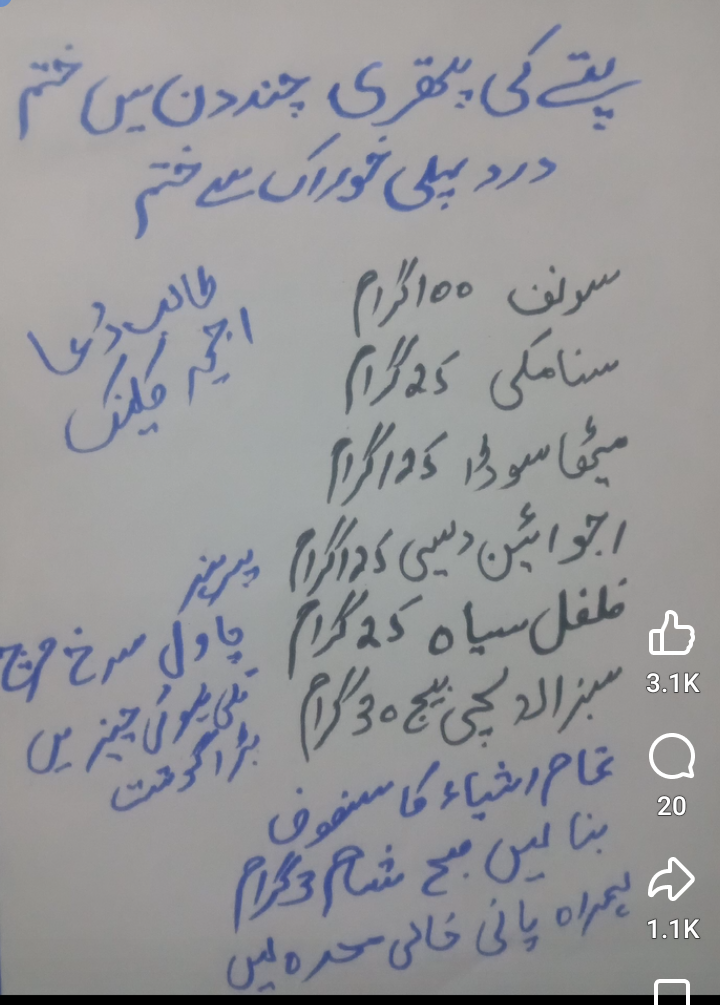 پتے کی پتھری چند دن میں ختم
درد پہلی خوراک سے ختم
سونف 100 گرام
سنامکی 25 گرام
میٹھا سوڈا 125 گرام
اجوائین دیسی 125 گرام
فلفل سیاہ 25 گرام
سبز الائچی بیج 30 گرام
طالب دُعا
کلینک
پرہیز
چاول سرخ مرچ
تلی ہوئی چیزیں
بڑا گوشت
تمام اشیاء کا سفوف
بنا لیں صبح شام 3 گرام
ہمراہ پانی خالی معدہ لیں
3.1K
20
1.1K